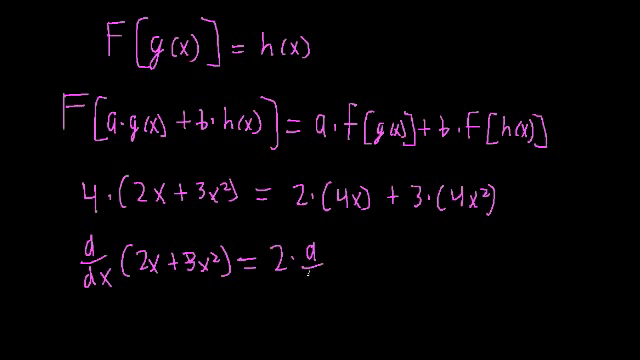 F[g(x)] = h(x)
F[a·g(x) + b·h(x)] = a·F[g(x)] + b·F[h(x)]
4·(2x + 3x²) = 2·(4x) + 3·(4x²)
d/dx (2x + 3x²) = 2·d/